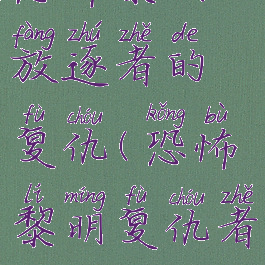 fàng zhú zhě de
放逐者的
fù chóu kǒng bù
复仇(恐怖
lí míng fù chóu zhě
黎明复仇者